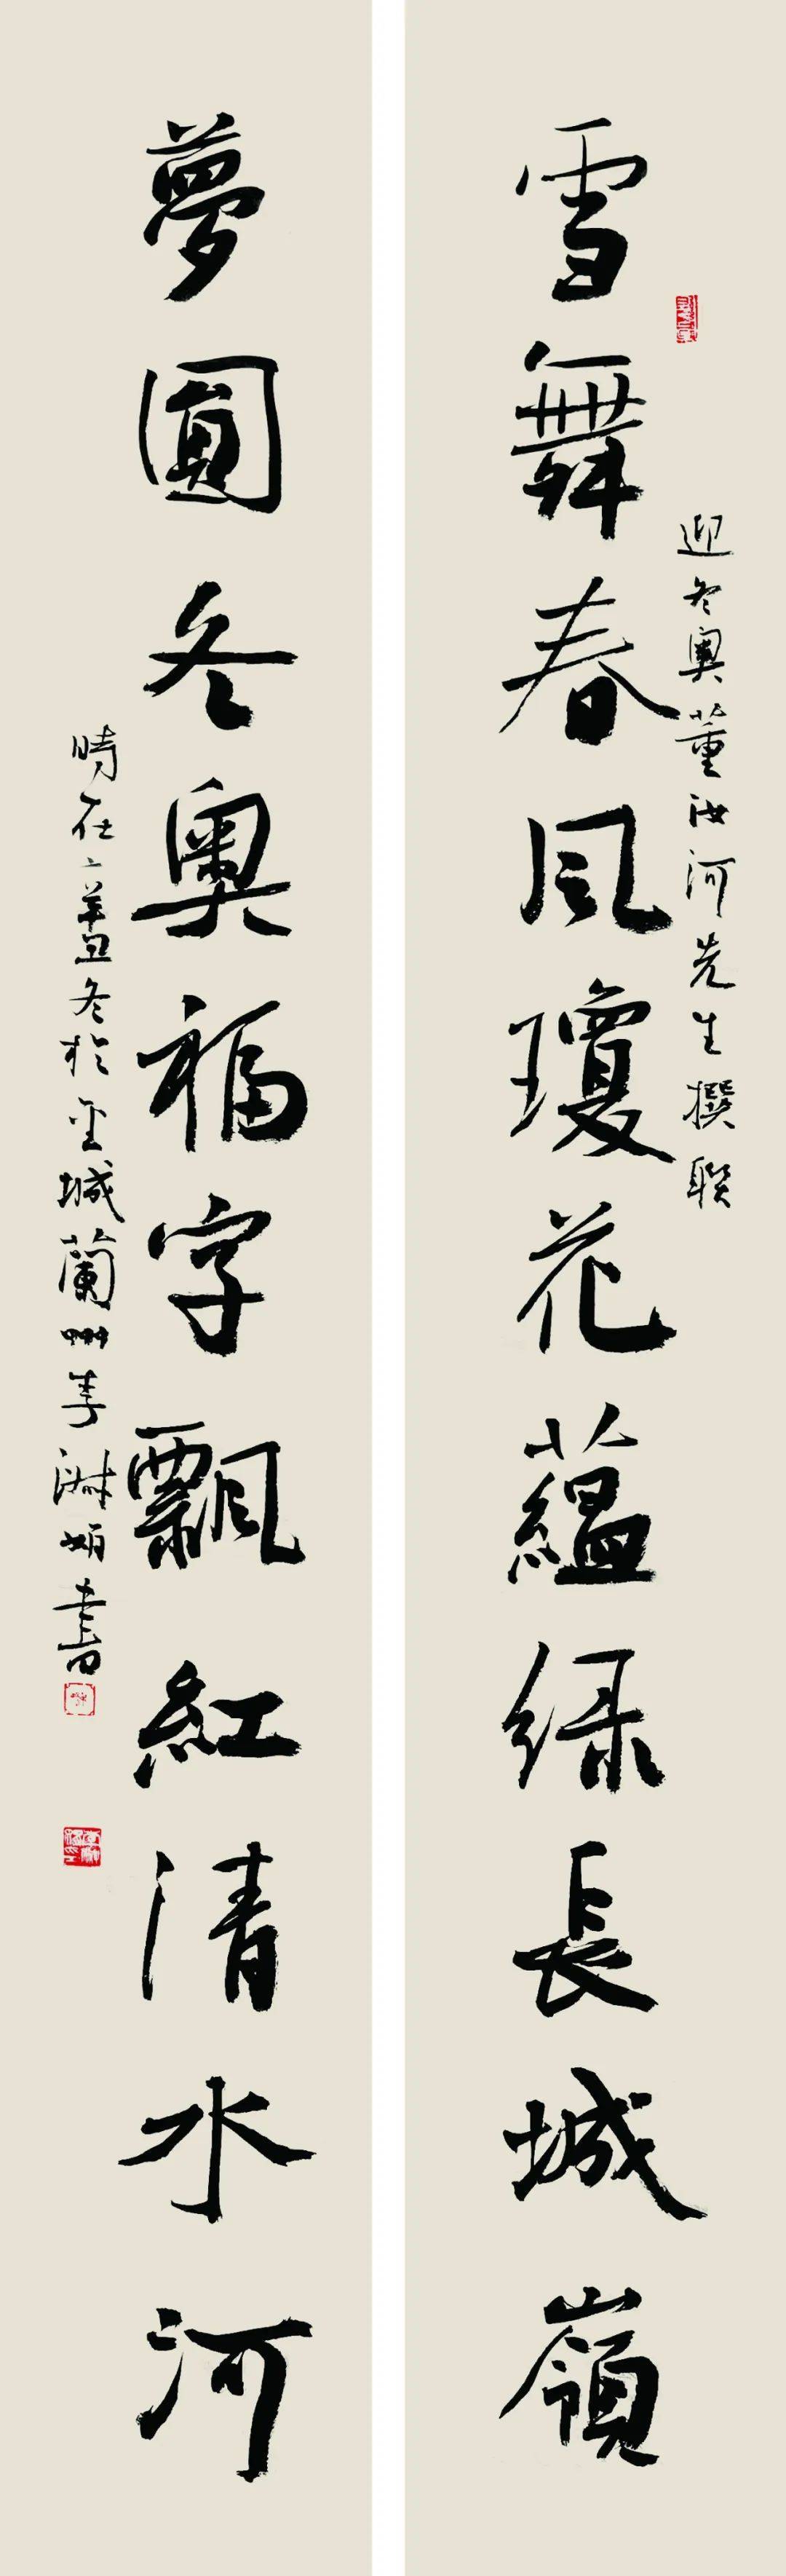 迎冬奧董汝河先生撰聯
雪舞春風瓊花蘊綠長城嶺
夢圓冬奧福字飄紅清水河
時在辛丑冬於金城蘭州李書